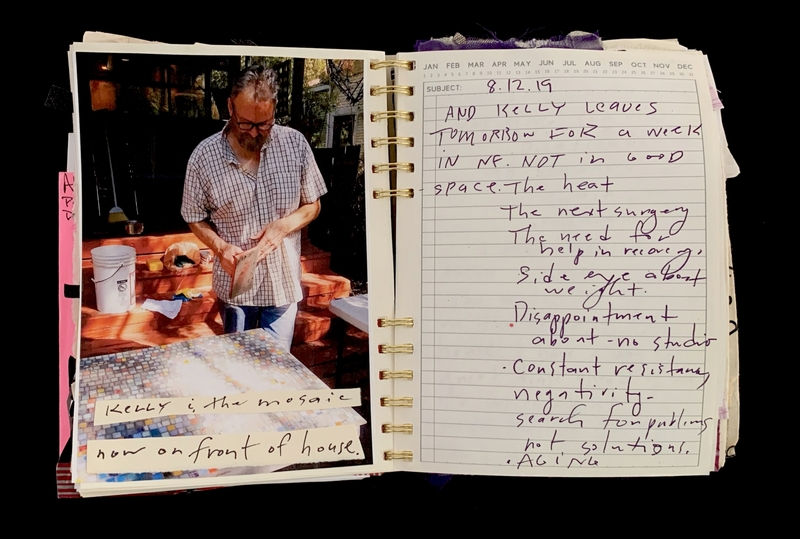 KELLY & the mosaic
now on front of house.
JAN FEB MAR APR MAY JUN JUL AUG SEP OCT NOV DEC
SUBJECT: 8.12.19
AND KELLY LEAVES
TOMORROW FOR a week
IN NF. NOT in GOOD
space. The heat
The next surgery
The need for
help in recovery.
Side eye about
weight.
Disappointment
about - no studio
· Constant resistance
negativity -
search for problems
not solutions.
· AGING